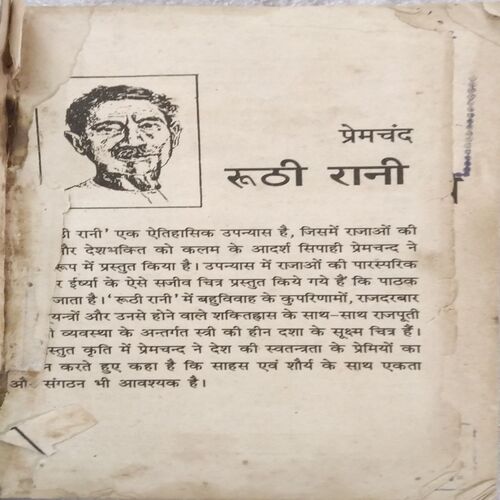 प्रेमचंद
रूठी रानी
ठी रानी' एक ऐतिहासिक उपन्यास है, जिसमें राजाओं की
और देशभक्ति को कलम के आदर्श सिपाही प्रेमचन्द ने
रूप में प्रस्तुत किया है। उपन्यास में राजाओं की पारस्परिक
र ईर्ष्या के ऐसे सजीव चित्र प्रस्तुत किये गये हैं कि पाठक
जाता है। 'रूठी रानी' में बहुविवाह के कुपरिणामों, राजदरबार
यन्त्रों और उनसे होने वाले शक्तिह्रास के साथ-साथ राजपूती
व्यवस्था के अन्तर्गत स्त्री की हीन दशा के सूक्ष्म चित्र हैं।
स्तुत कृति में प्रेमचन्द ने देश की स्वतन्त्रता के प्रेमियों का
न करते हुए कहा है कि साहस एवं शौर्य के साथ एकता
औ संगठन भी आवश्यक है।